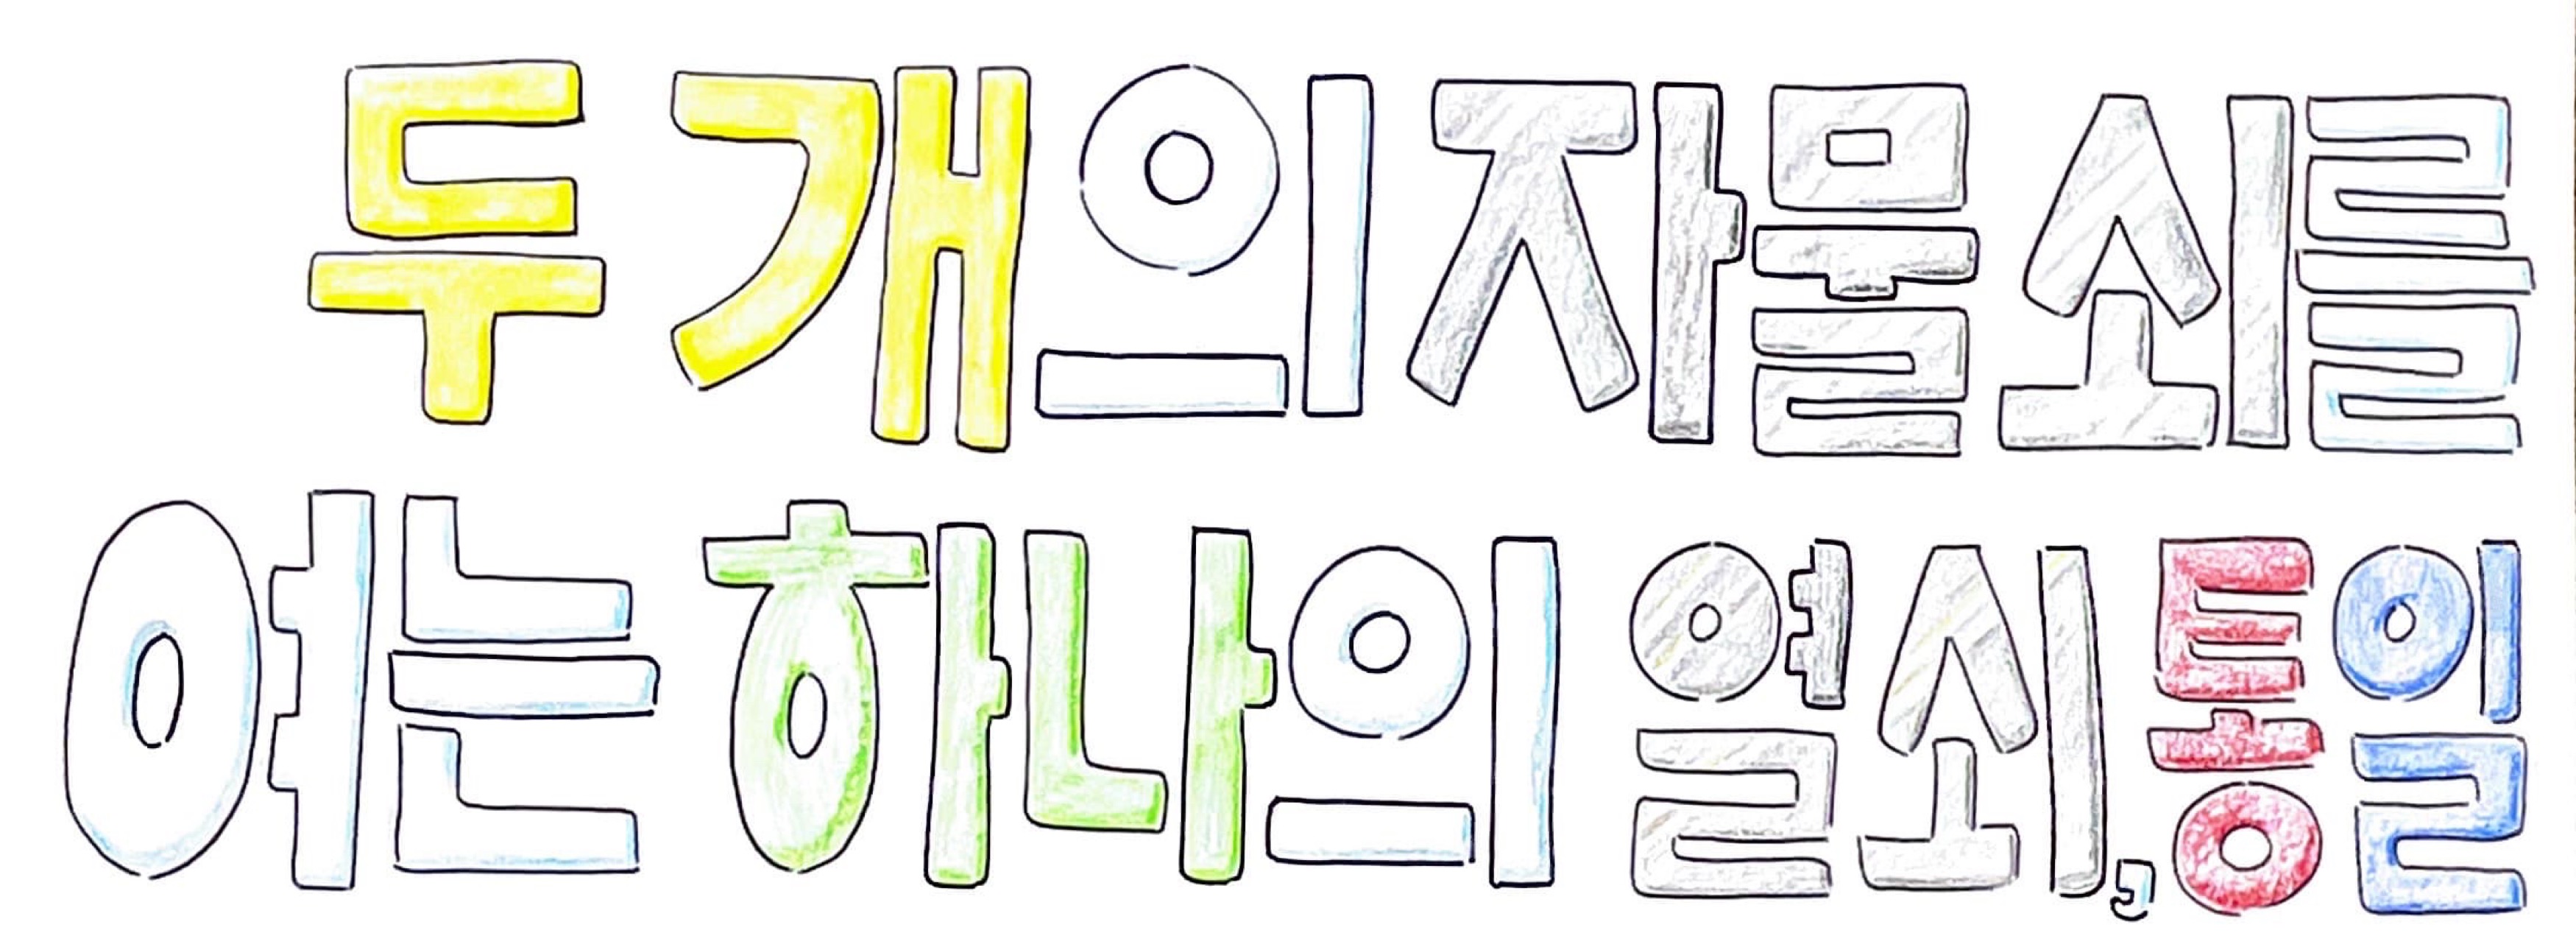 두 개의 자물쇠를
여는 하나의 열쇠, 통일